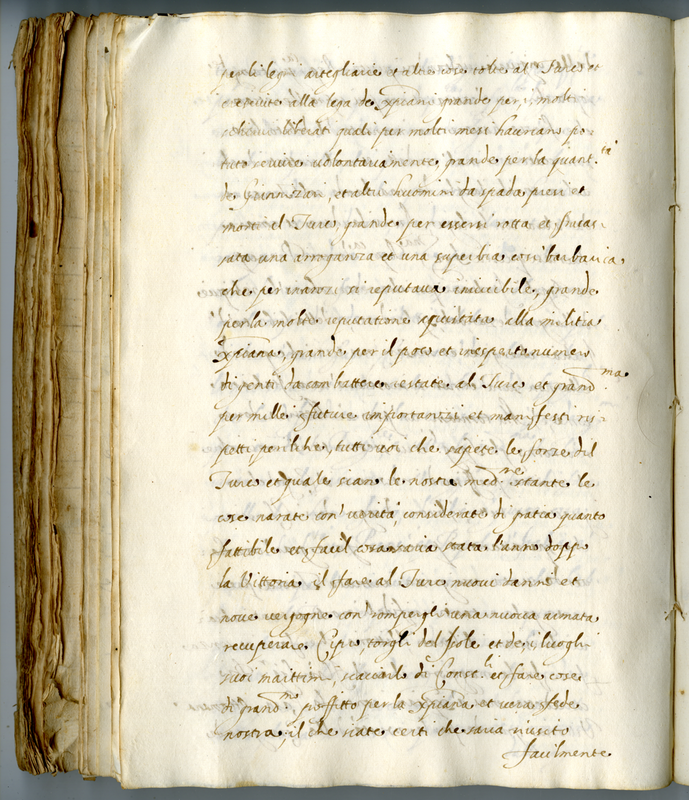 negli legni artegliarie et altre cose tolte al Turco et
acquistate alla lega de xpiani grande per i molti
schiavi liberati quali per molti mesi haveano po-
tuto servire volontariamente, grande per la quant.tà
de Giannizari, et altri huomini da spada presi et
morti al Turco, grande per essersi rotta et fracas-
sata una arroganza et una superbia così barbarica
che per inanzi si reputava invicibile, grande
per la molta reputatione acquistata alla militia
Xpiana, grande per il poco et inesperto numero
di genti da combattere restate al Turco et grand.ma
per mille future importanzi et manifesti ris-
petti per il che, tutti voi che sapete le forze dil
Turco et quale sian le nostre med.me stante le
cose narate con verità, considerate di gratia quanto
fattibile et facil cosa saria stata l'anno doppo
la Vittoria il fare al Turco nuovi danni et
nove vergogne con rompergli una nuova armata
recuperare Cipro torgli del Isole et de i luoghi
suoi maritimi, scacciarlo di Const.li et fare cose
di grand.mo proffitto per la Xpiana et vera fede
nostra, il che siate certi che saria riuscito
facilmente